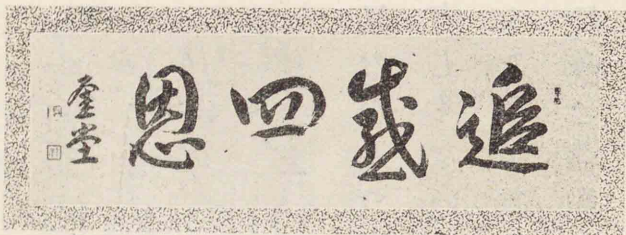 追感四恩
奎堂